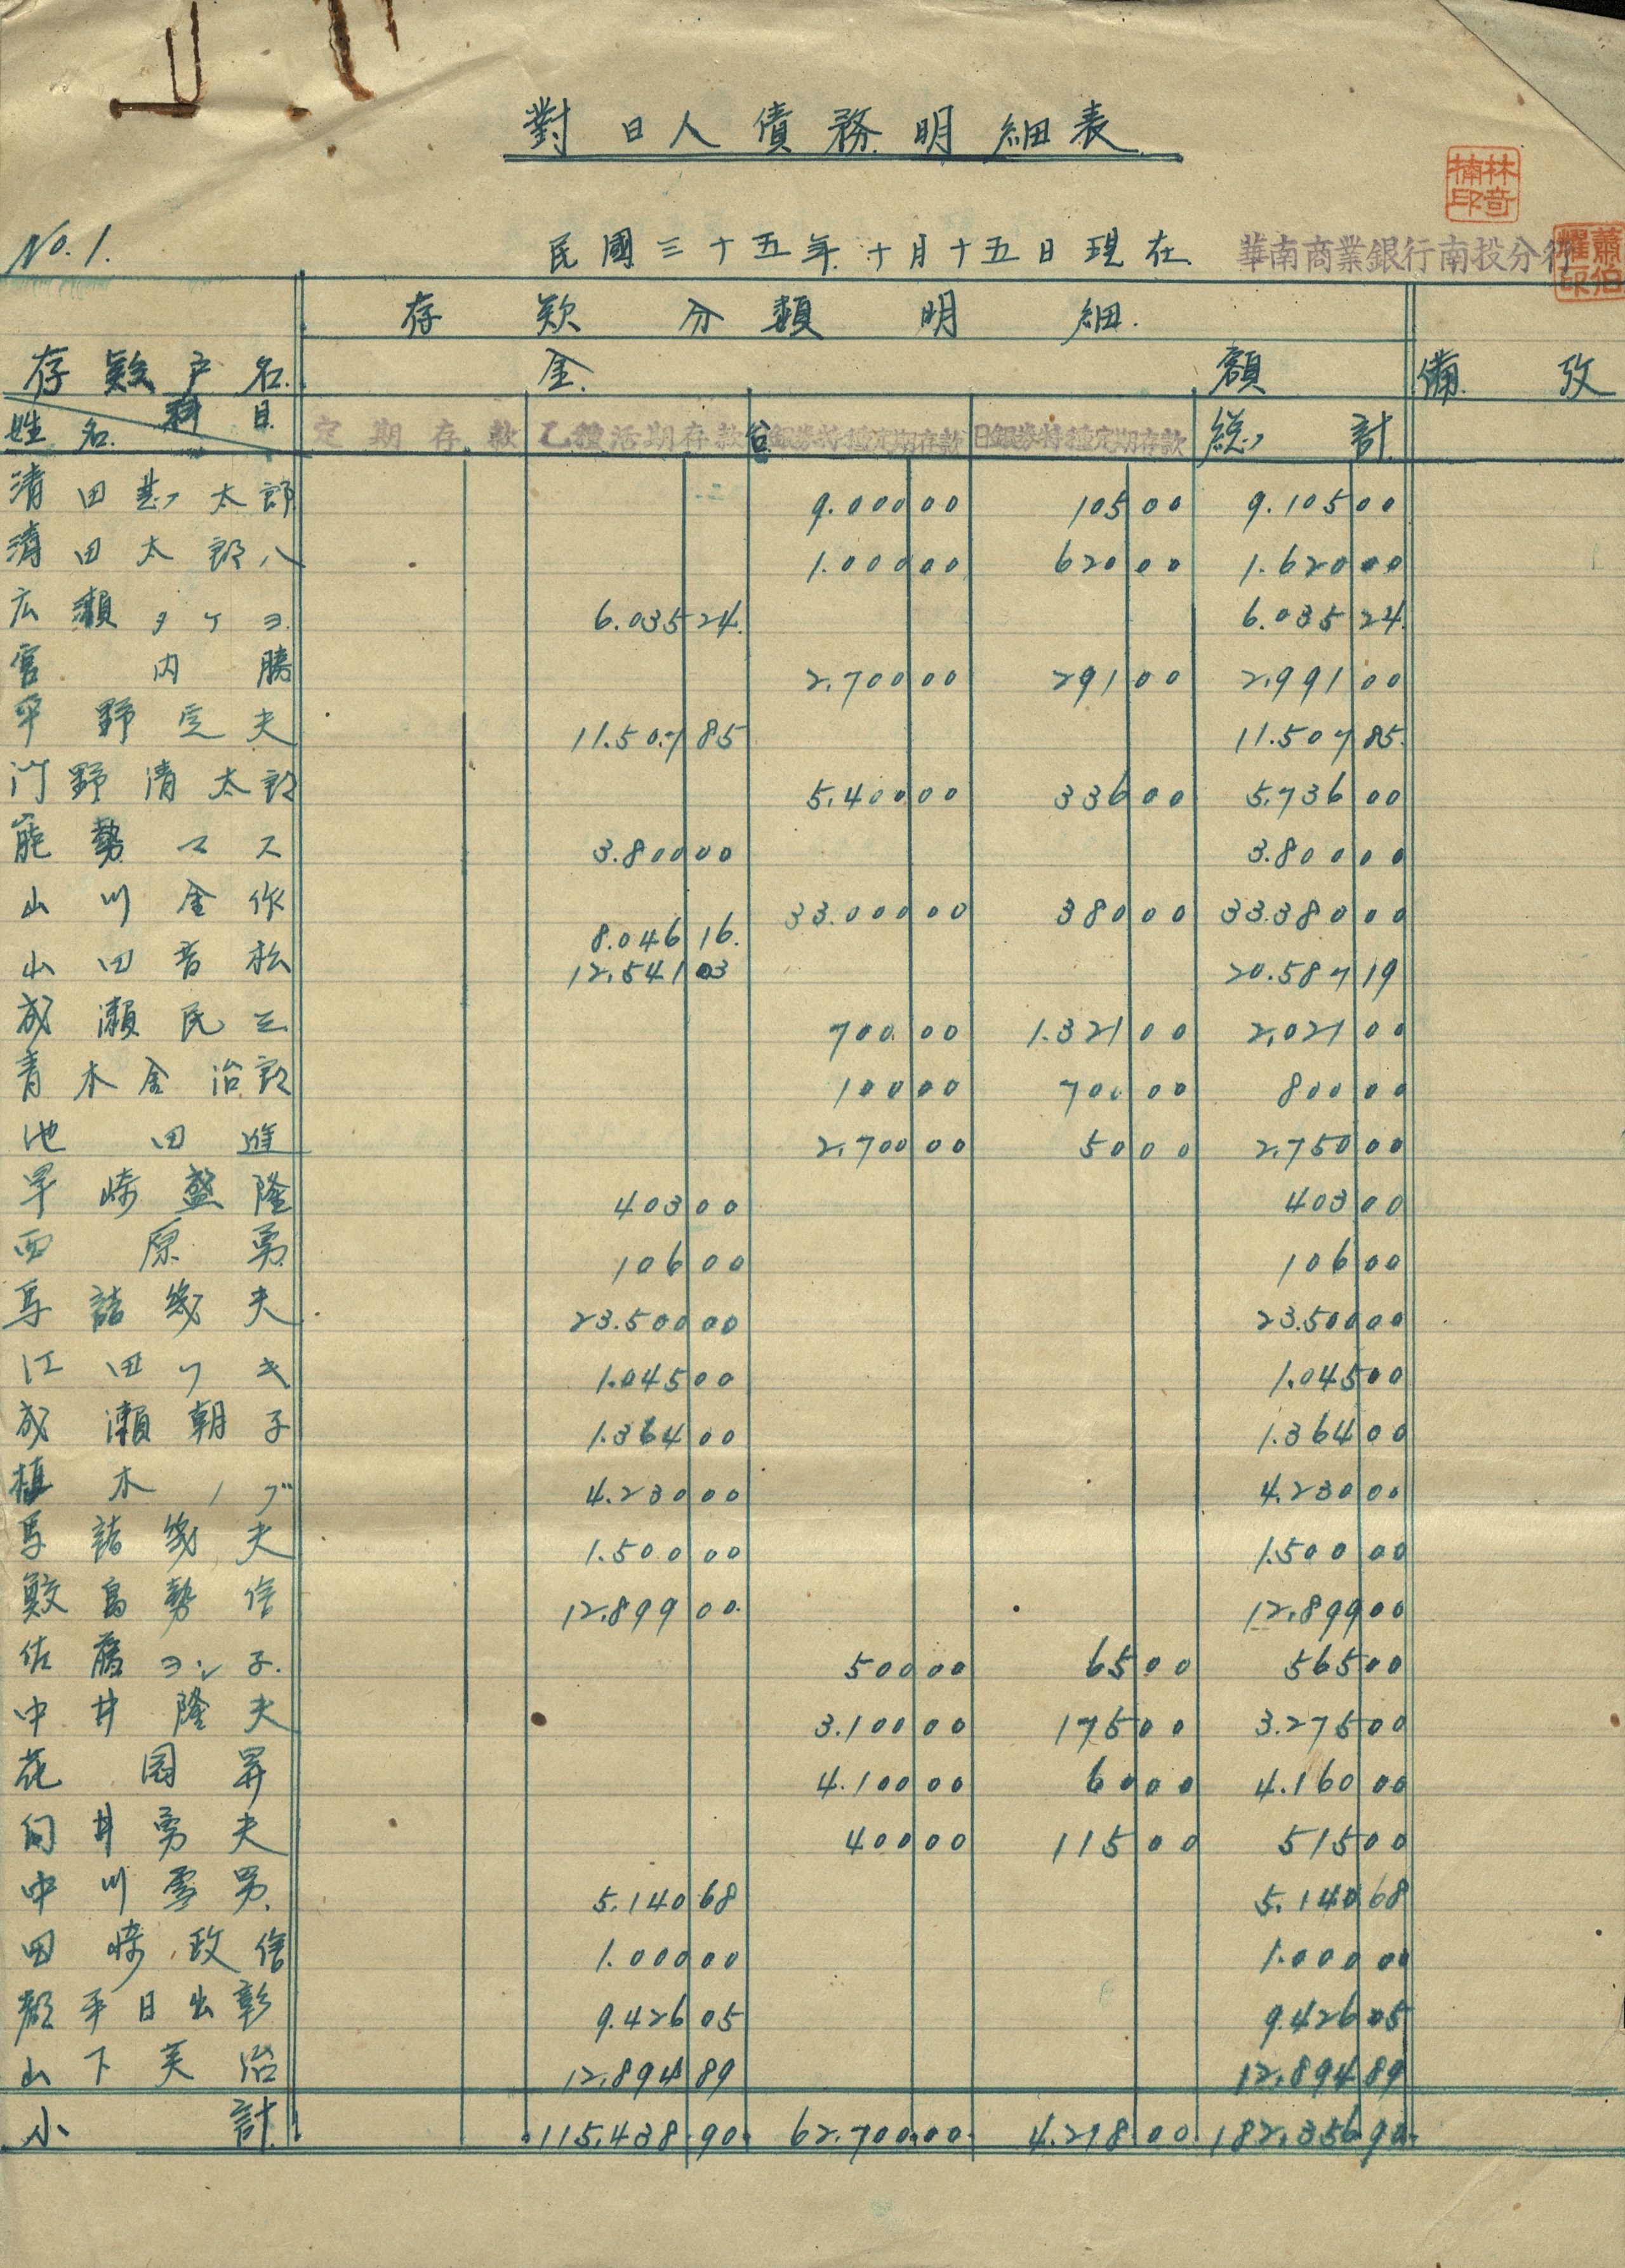 對日人債務明細表
林奇楠印
No.1.
民國三十五年十月十五日現在
華南商業銀行南投分行
蕭伯耀印
存款分類明細
存款戶名 金額 備攷
姓名 科目 定期存款 乙種活期存款 台銀券特種定期存款 日銀券特種定期存款 総計
清田甚太郎 9.000 00 105 00 9.105 00
清田太郎八 1.000 00 620 00 1.620 00
広瀬タケヨ 6.035 24 6.035 24
宮内勝 2.700 00 291 00 2.991 00
平野定夫 11.507 85 11.507 85
門野清太郎 5.400 00 336 00 5.736 00
能勢マス 3.800 00 3.800 00
山川金作 33.000 00 380 00 33.380 00
8.046 16
山田音松 12.541 03 20.587 19
成瀬民三 700 00 1.321 00 2.021 00
青木金治郎 100 00 700 00 800 00
池田進 2.700 00 50 00 2.750 00
崎盛隆 403 00 403 00
西原勇 106 00 106 00
馬詰幾夫 23.500 00 23.500 00
江田ワキ 1.045 00 1.045 00
成瀬朝子 1.364 00 1.364 00
植木ノブ 4.230 00 4.230 00
馬詰幾夫 1.500 00 1.500 00
鮫島勢信 12.899 00 12.899 00
佐藤ヨシ子 500 00 65 00 565 00
中井隆夫 3.100 00 175 00 3.275 00
花園昇 4.100 00 60 00 4.160 00
向井勇夫 400 00 115 00 515 00
中川雪男 5.140 68 5.140 68
田崎政信 1.000 00 1.000 00
平日出彰 9.426 05 9.426 05
山下芙治 12.894 89 12.894 89
小計 115.438 90 62.700 00 4.218 00 182.356 90